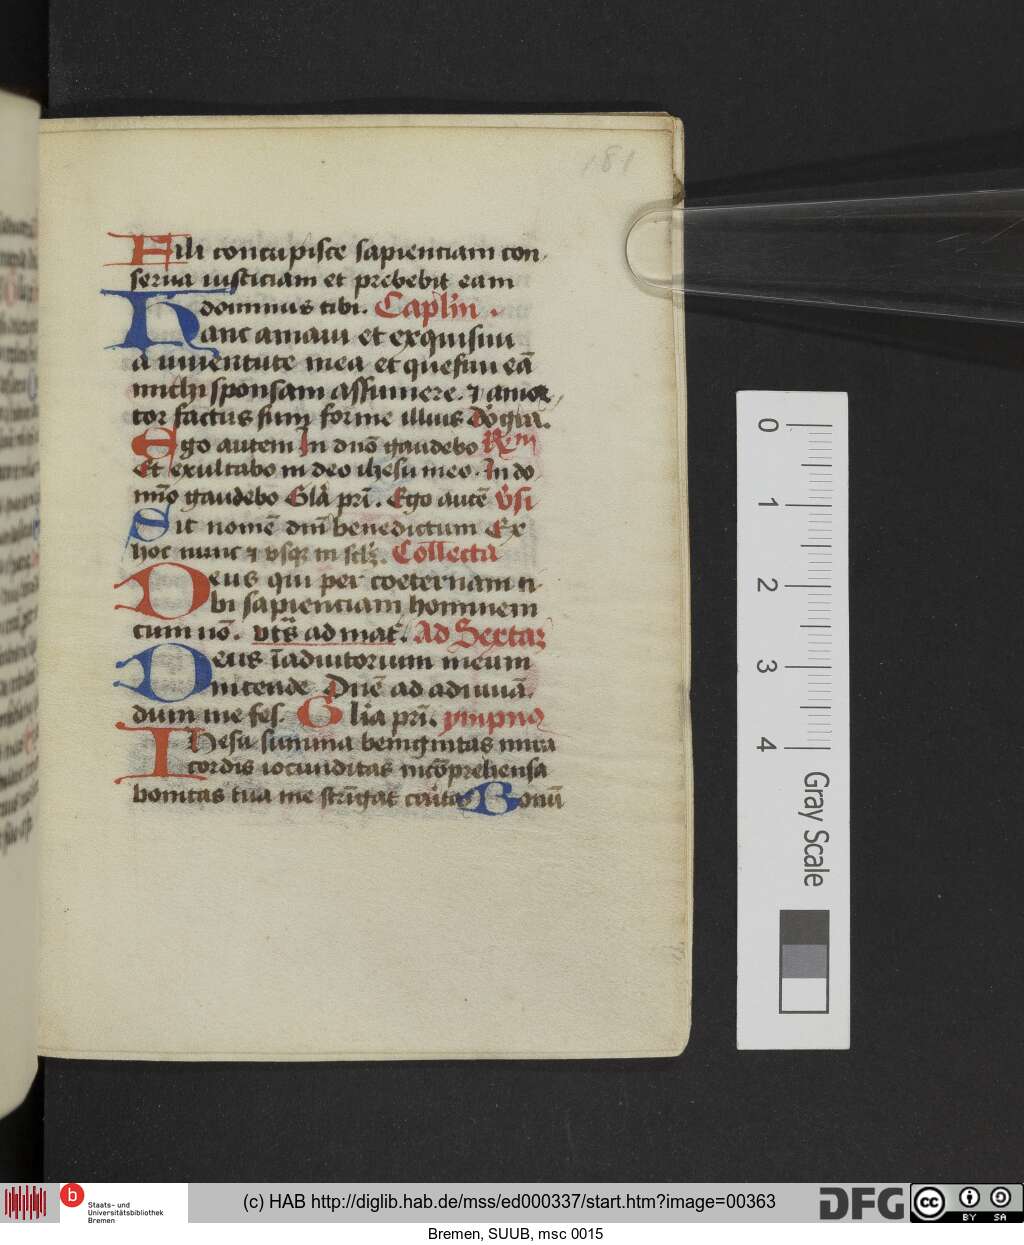 181
Fili concupisce sapienciam con-
serua iusticiam et prebebit eam
dominus tibi. Caplm.
Hanc amaui et exquisiui
a iuuentute mea et quesiui eā
michi sponsam assumere. ⁊ ama
tor factus sum forme illius Dō gr̄a.
Ego autem In dnō gaudebo Rm
Et exultabo in deo ihesu meo. In do
mīo gaudebo Glā prī. Ego autē v̄si
Sit nomē dnī benedictum Ex
hoc nunc ⁊ vsqꝫ in sclꝫ. Collecta
Deus qui per coeternam ti-
bi sapienciam hominem
cum nō. vts̄ ad mat̄. Ad Sextaꝫ
Deus ī adiutorium meum
intende Dnē ad adiuuā-
dum me fes. Glīa prī. ympnꝰ
Ihesu summa benignitas mira
cordis iocunditas incōprehensa
bonitas tua me strīgat caritas Bonū
0
1
2
3
4
Gray Scale
b Staats- und
Universitätsbibliothek
Bremen
(c) HAB http://diglib.hab.de/mss/ed000337/start.htm?image=00363
DFG
cc BY SA
Bremen, SUUB, msc 0015